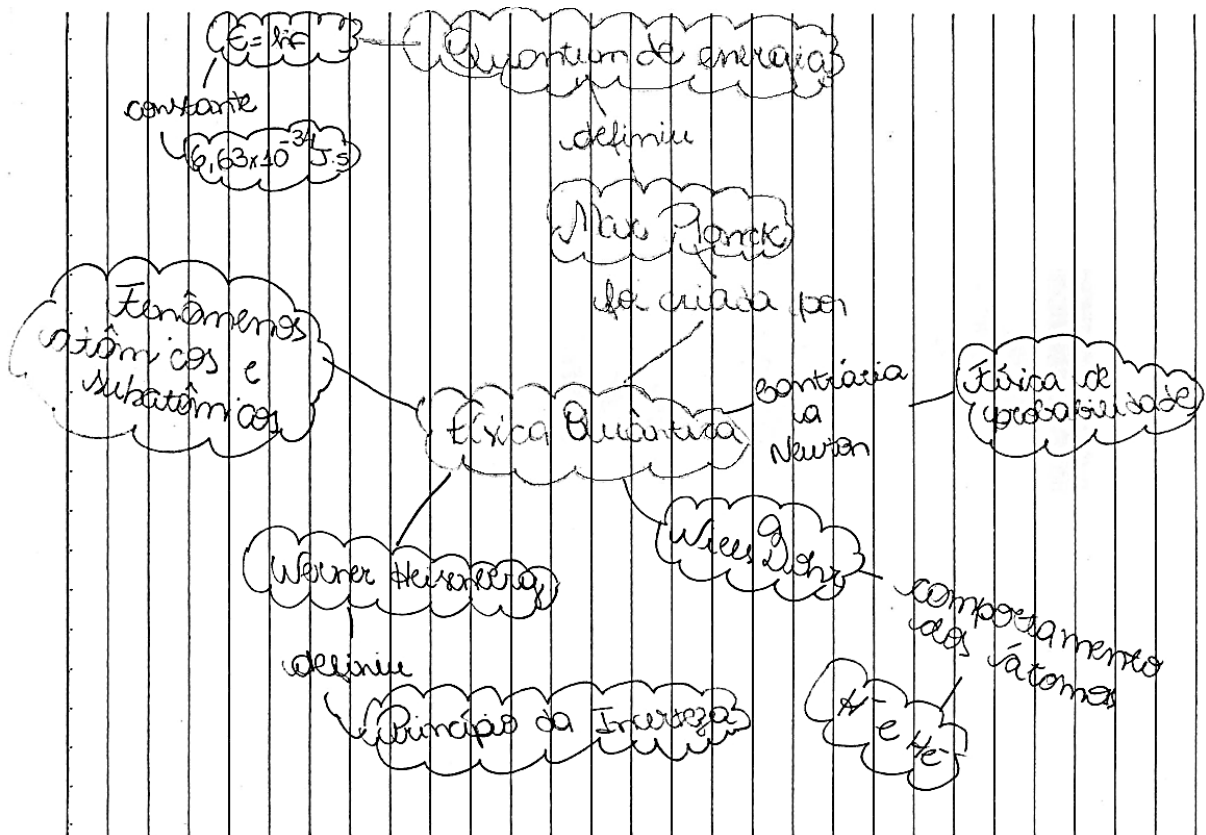 E = h.f
Quantum de energia
constante
definiu
6,63x10^-34 J.s
Max Planck
foi criada por
Fenômenos
atômicos e
subatômicos
Física Quântica
contrária
a
Newton
Física de
probabilidade
Werner Heisenberg
Niels Bohr
definiu
Princípio da Incerteza
comportamento
dos átomos
H⁻
e He⁻